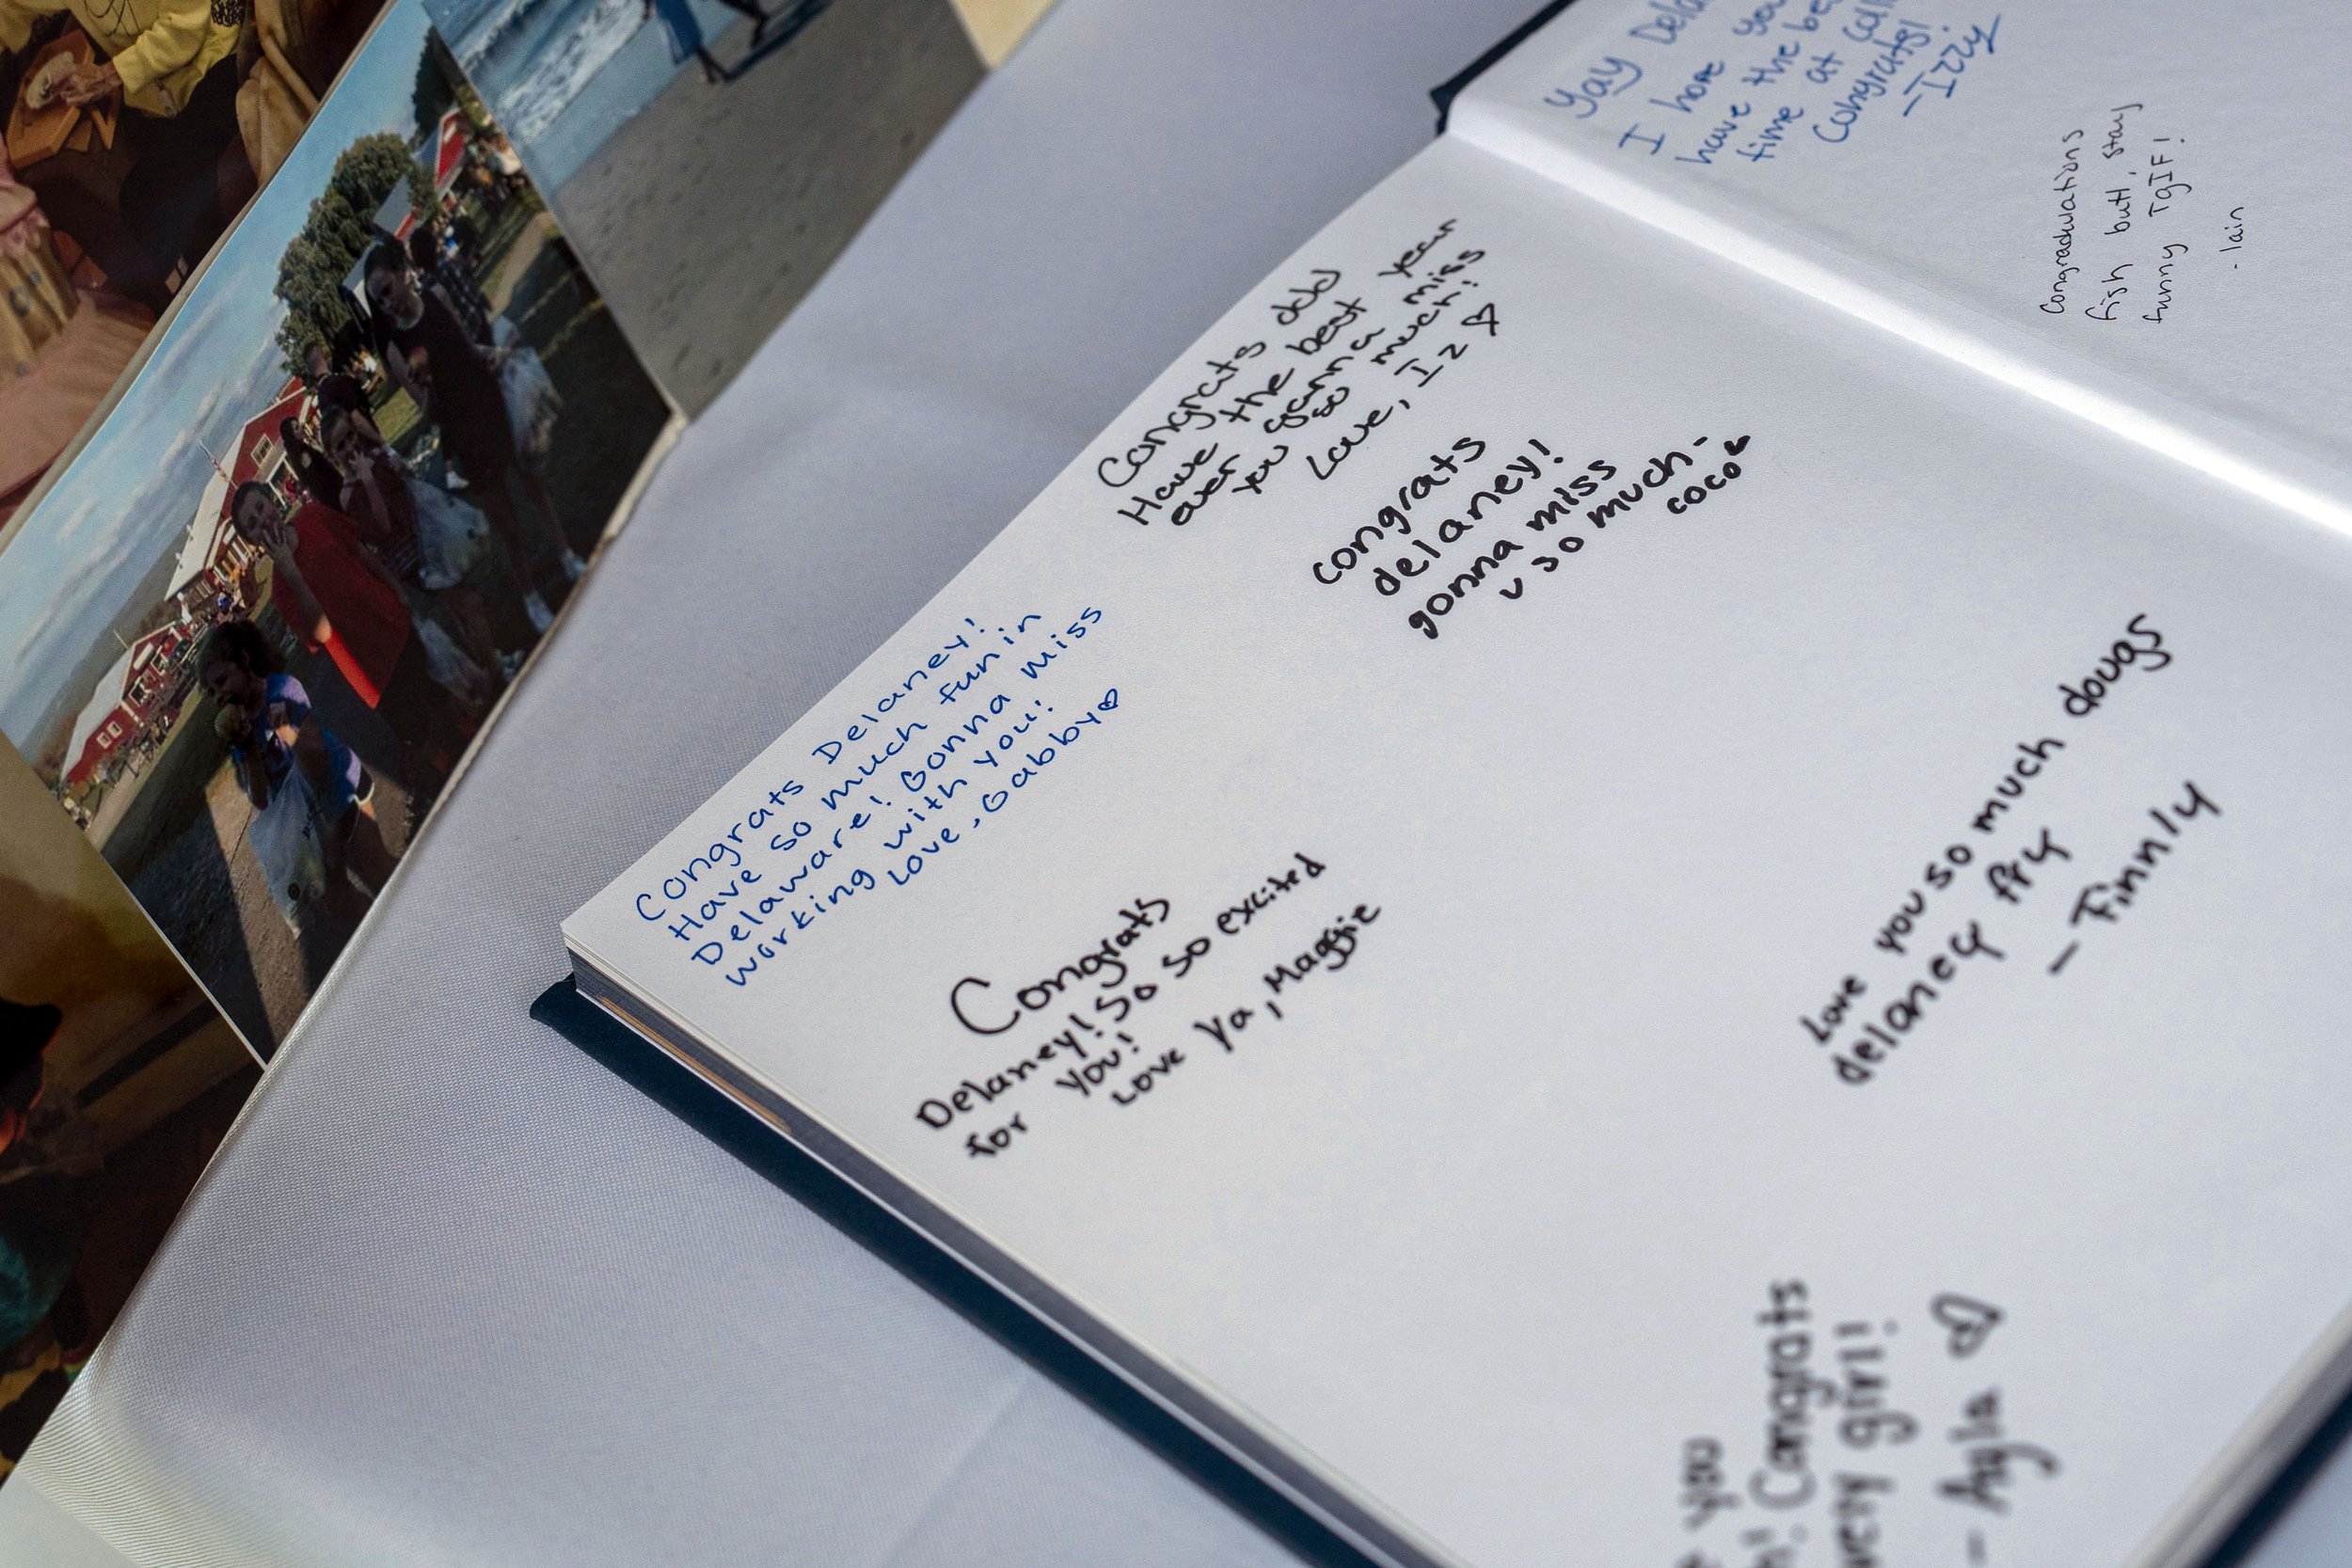 Yay
I hope you
have the be
time at coll
Congrats!
-Izzy
Congraduations
fish butt, stay
funny TgIF!
- Iain
Congrats deld
Have the best year
ever gunna miss
you so much!
Love, Iz
congrats
delaney!
gonna miss
u so much-
coco
Congrats Delaney!
Have so much fun in
Delaware! Gonna miss
working with you!
Love, Gabby
Congrats
Delaney! So so excited
for you!
Love Ya, Maggie
Love you so much dougs
delaney fry
- Finnly
you
! Congrats
girl!
- Ayla